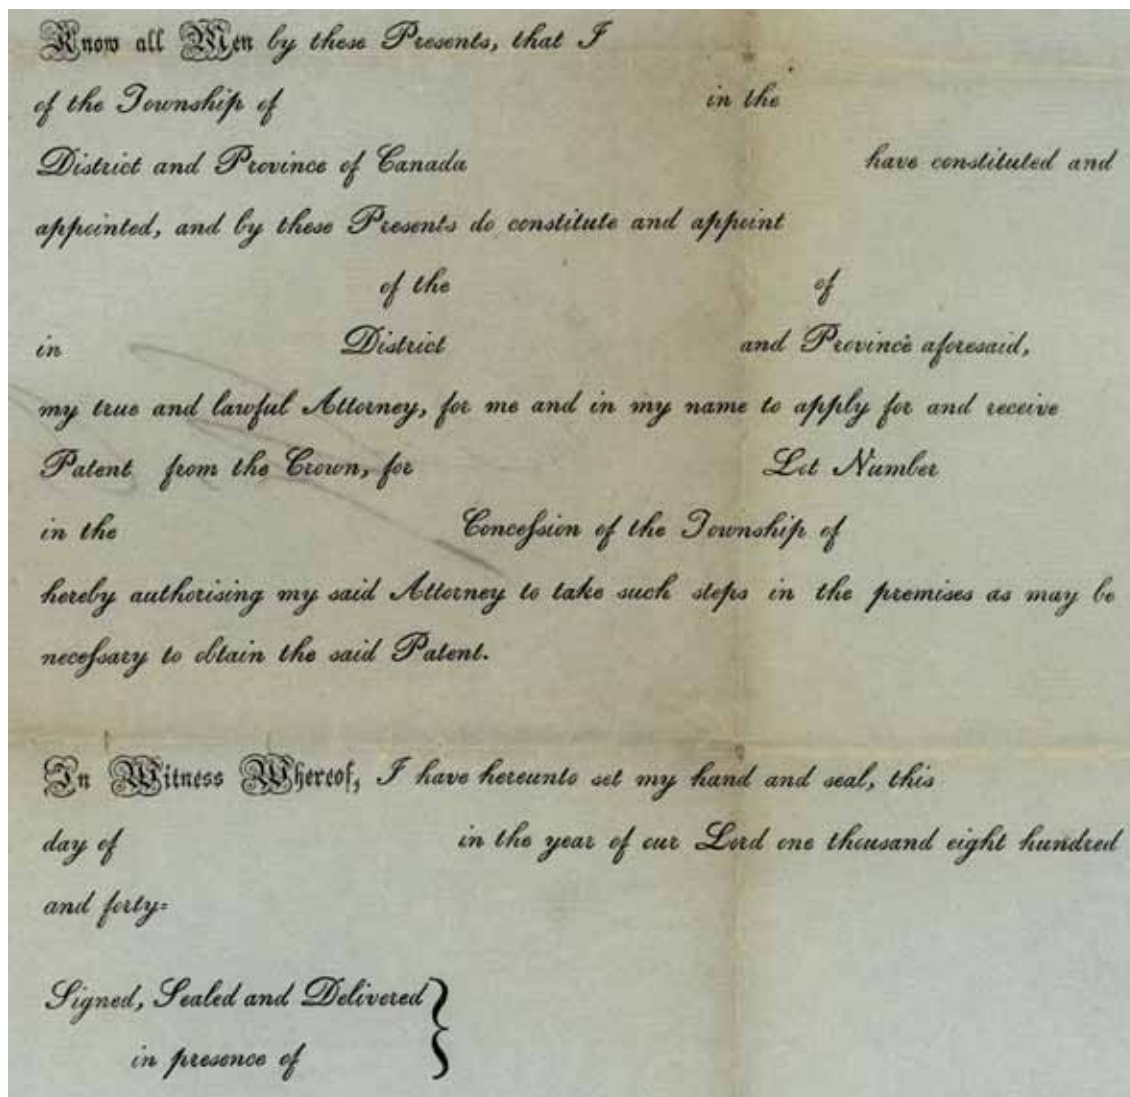 Know all Men by these Presents, that I
of the Township of in the
District and Province of Canada have constituted and
appointed, and by these Presents do constitute and appoint
of the of
in District and Province aforesaid,
my true and lawful Attorney, for me and in my name to apply for and receive
Patent from the Crown, for Lot Number
in the Conceſsion of the Township of
hereby authorising my said Attorney to take such steps in the premises as may be
neceſsary to obtain the said Patent.
In Witness Whereof, I have hereunto set my hand and seal, this
day of in the year of our Lord one thousand eight hundred
and forty=
Signed, Sealed and Delivered }
in presence of